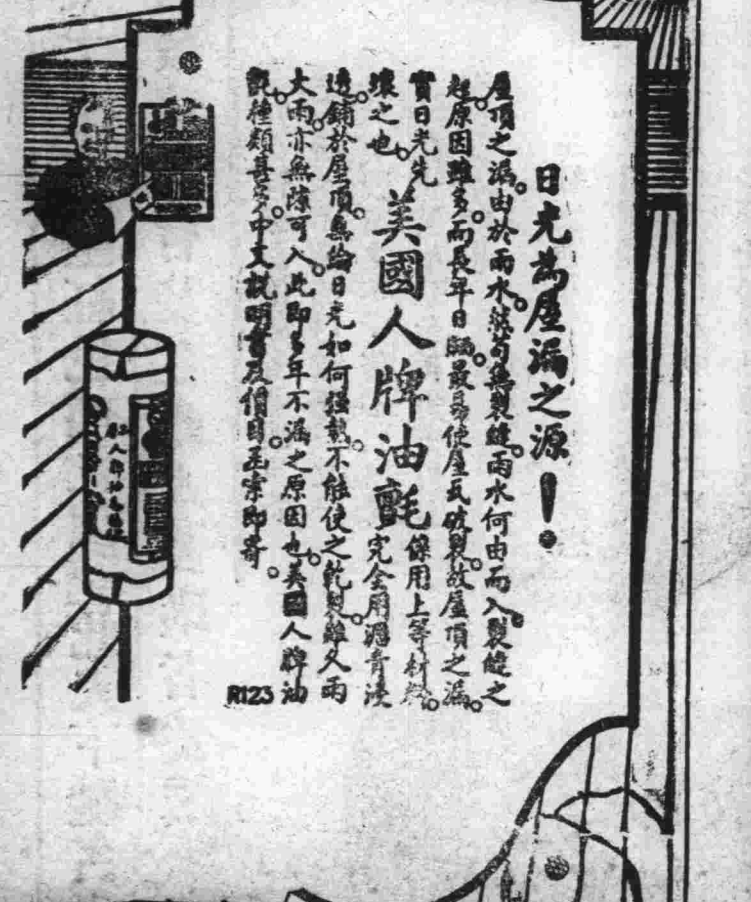 日光為屋漏之源！
屋頂之漏。由於雨水。然苟無裂縫。雨水何由而入。裂縫之
起。原因雖多。而長年日曬。最易使屋瓦破裂。故屋頂之漏。
實日光先 係用上等材料。
壞之也。美國人牌油毯 完全用瀝青浸
透。鋪於屋頂。無論日光如何強熱。不能使之乾裂。雖久雨
大雨。亦無隙可入。此即多年不漏之原因也。美國人牌油
毯種類甚多。中文説明書及價目。函索即寄。
R123
人牌油毛毯